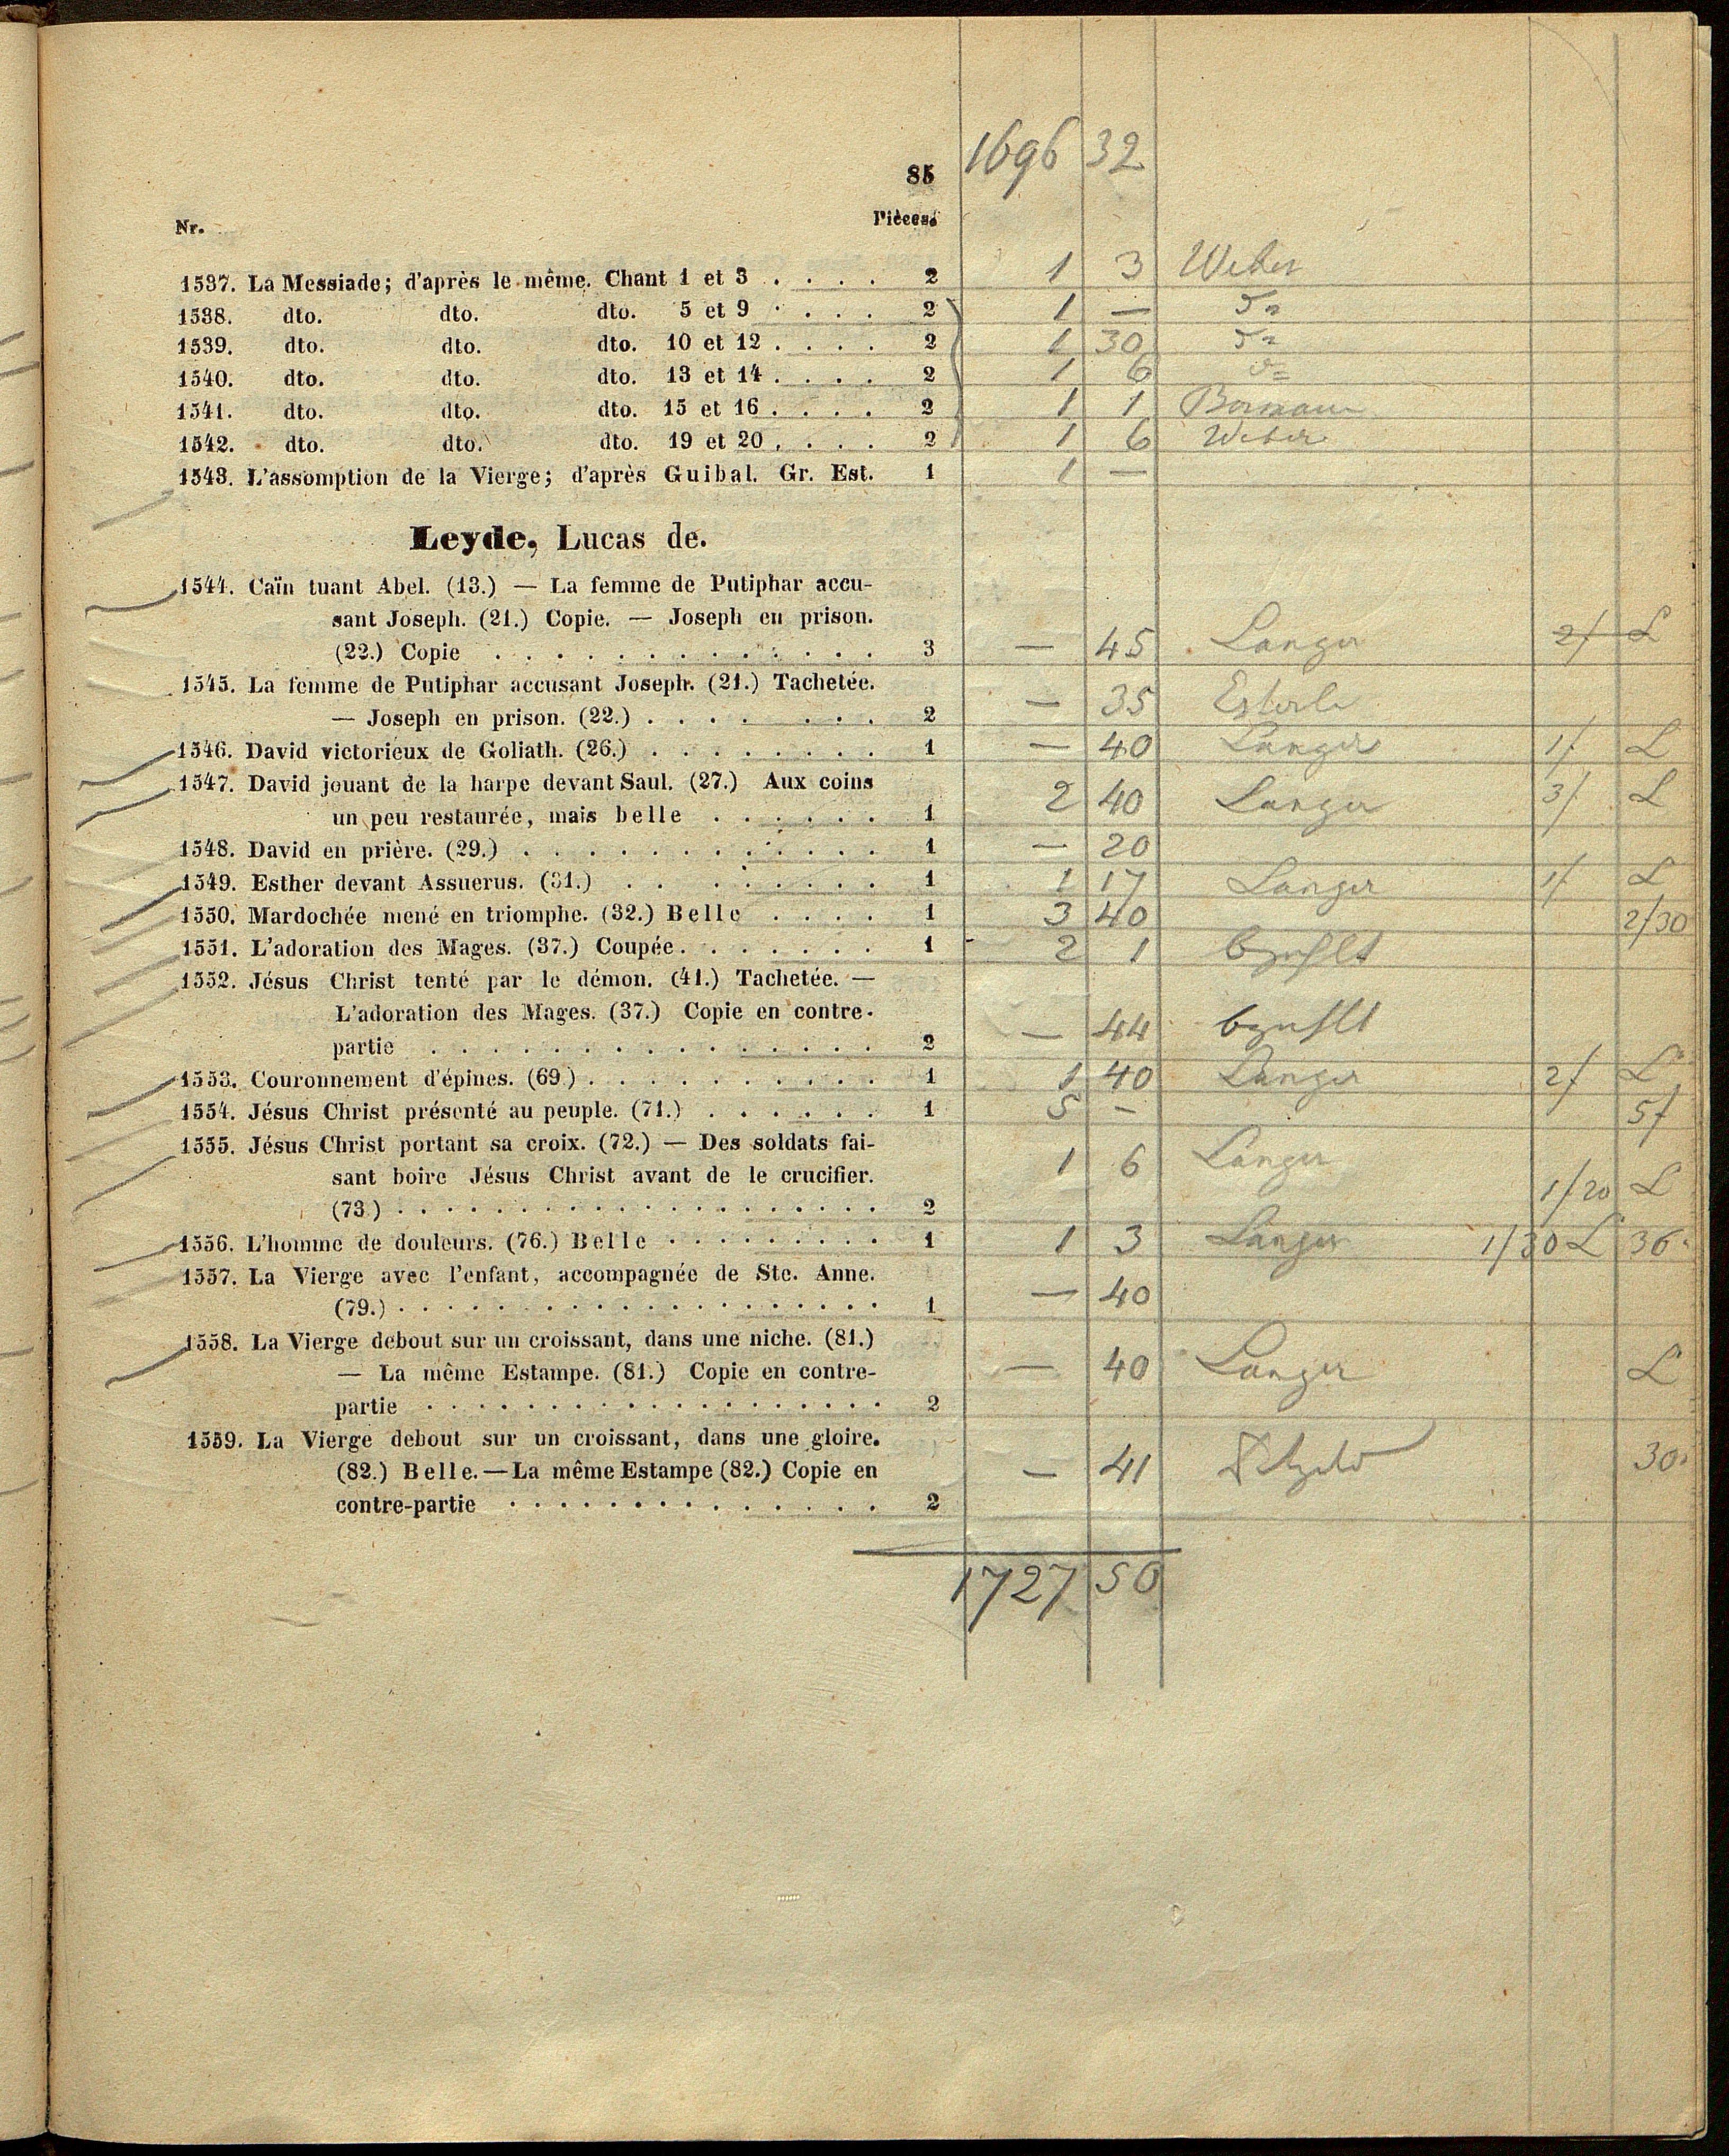 85 1696 32
Nr. Pièces.
1537. La Messiade; d'après le même. Chant 1 et 3 . . . . 2 1 3 Weber
1538. dto. dto. dto. 5 et 9 . . . . 2 1 —
1539. dto. dto. dto. 10 et 12 . . . . 2 1 30
1540. dto. dto. dto. 13 et 14 . . . . 2 1 6
1541. dto. dto. dto. 15 et 16 . . . . 2 1 1
1542. dto. dto. dto. 19 et 20 . . . . 2 1 6 Weber
1543. L'assomption de la Vierge; d'après Guibal. Gr. Est. 1 1 —
Leyde, Lucas de.
1544. Caïn tuant Abel. (13.) — La femme de Putiphar accu-
sant Joseph. (21.) Copie. — Joseph en prison.
(22.) Copie . . . . . . . . . . . . . 3 — 45 Langer 2/ L
1545. La femme de Putiphar accusant Joseph. (21.) Tachetée.
— Joseph en prison. (22.) . . . . . . . 2 — 35
1546. David victorieux de Goliath. (26.) . . . . . . . . 1 — 40 Langer 1/ L
1547. David jouant de la harpe devant Saul. (27.) Aux coins
un peu restaurée, mais belle . . . . . . 1 2 40 Langer 3/ L
1548. David en prière. (29.) . . . . . . . . . . . . 1 — 20
1549. Esther devant Assuerus. (31.) . . . . . . . . 1 1 17 Langer 1/ L
1550. Mardochée mené en triomphe. (32.) Belle . . . . 1 3 40 2/30
1551. L'adoration des Mages. (37.) Coupée . . . . . . . 1 2 1
1552. Jésus Christ tenté par le démon. (41.) Tachetée. —
L'adoration des Mages. (37.) Copie en contre-
partie . . . . . . . . . . . . . . . 2 — 44
1553. Couronnement d'épines. (69.) . . . . . . . . . . 1 1 40 Langer 2/ L
1554. Jésus Christ présenté au peuple. (71.) . . . . . . 1 5 — 5/
1555. Jésus Christ portant sa croix. (72.) — Des soldats fai-
sant boire Jésus Christ avant de le crucifier. 1 6 Langer
(73.) . . . . . . . . . . . . . . . . . . . 2 1/20 L
1556. L'homme de douleurs. (76.) Belle . . . . . . . . . 1 1 3 Langer 1/30 L 36
1557. La Vierge avec l'enfant, accompagnée de Ste. Anne.
(79.) . . . . . . . . . . . . . . . . . . . 1 — 40
1558. La Vierge debout sur un croissant, dans une niche. (81.)
— La même Estampe. (81.) Copie en contre- — 40 Langer L
partie . . . . . . . . . . . . . . . . . . 2
1559. La Vierge debout sur un croissant, dans une gloire.
(82.) Belle. — La même Estampe (82.) Copie en — 41 30
contre-partie . . . . . . . . . . . . . . 2
1727 50